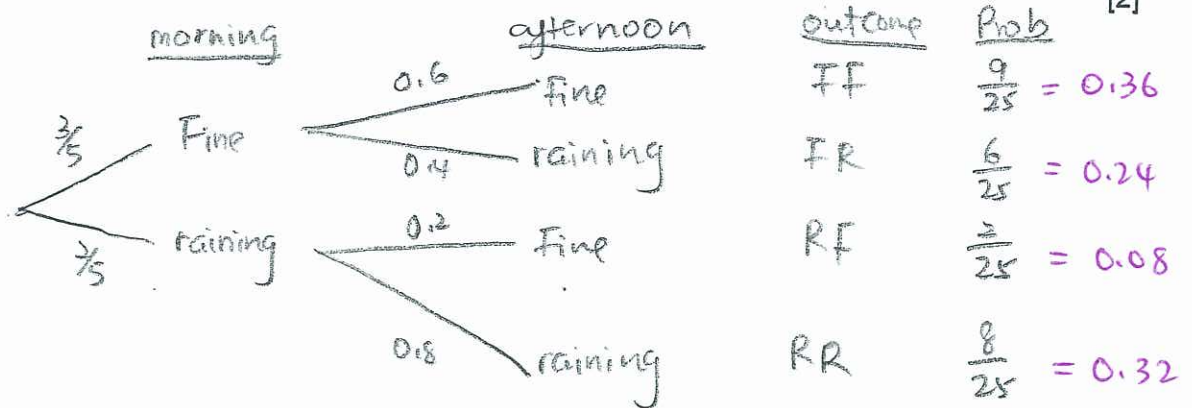 [2]
morning afternoon outcome Prob
0.6 fine FF 9/25 = 0.36
3/5 Fine
0.4 raining FR 6/25 = 0.24
2/5 raining 0.2 Fine RF 2/25 = 0.08
0.8 raining RR 8/25 = 0.32